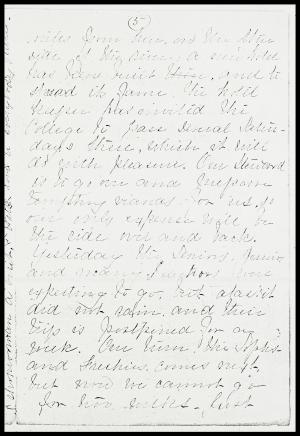 (5)
miles from here, on the other
side of the river, a new hotel
has been built there, and to
spread its fame, the hotel
keeper has invited the
College to pass several Satur-
days there, which it will
do with pleasure. Our Steward
is to go on and prepare
tempting viands for us, so
our only expense will be
the ride over and back.
Yesterday the Seniors, Juniors
and many Sophs were
expecting to go, but alas! it
did not rain, and their
trip is postponed for a
week. Our turn, the Sophs
and Freshies, comes next,
but now we cannot go
for two weeks. Last